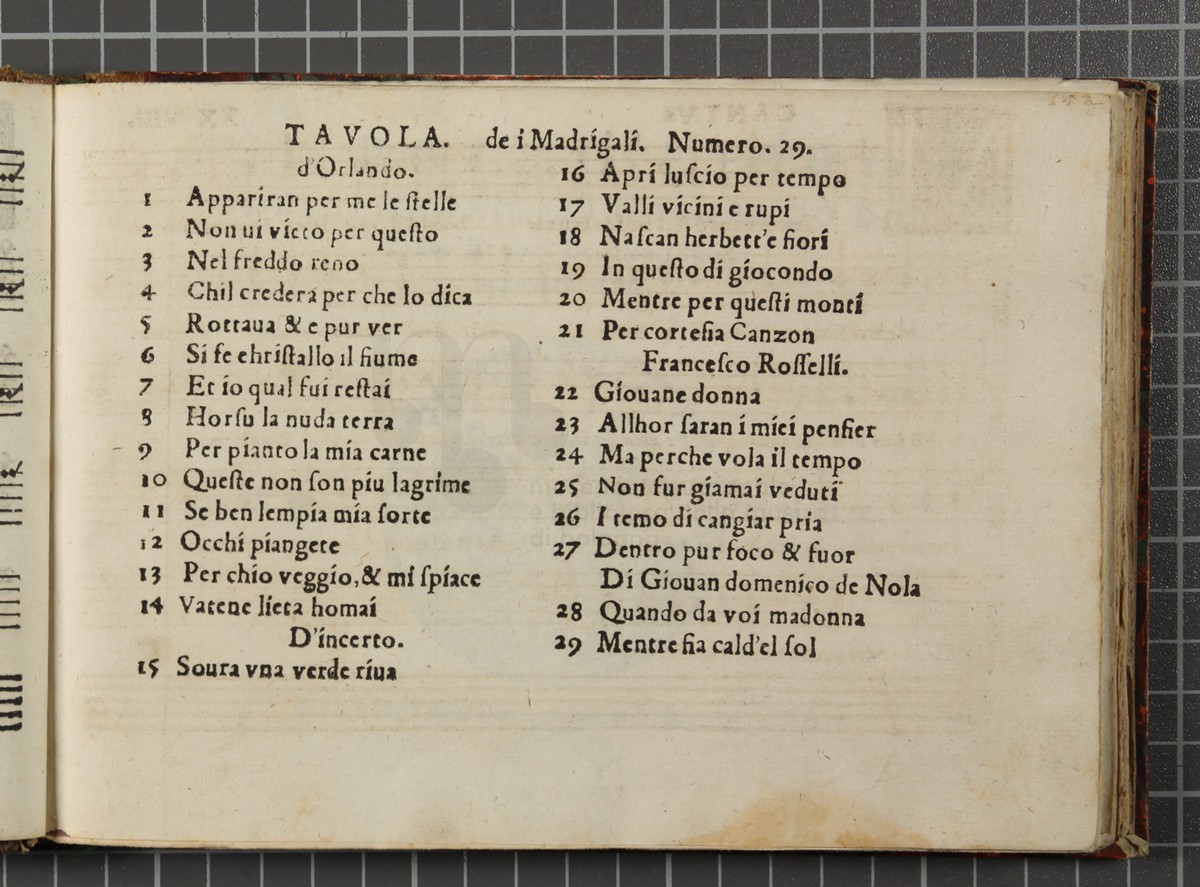 TAVOLA. de i Madrigali. Numero. 29.
d'Orlando.
1 Appariran per me le ſtelle
2 Non ui vieto per queſto
3 Nel freddo reno
4 Chil credera per che lo dica
5 Rottaua & e pur ver
6 Si fe chriſtallo il fiume
7 Et io qual fui reſtai
8 Horſu la nuda terra
9 Per pianto la mia carne
10 Queſte non ſon piu lagrime
11 Se ben lempia mia ſorte
12 Occhi piangete
13 Per chio veggio, & mi ſpiace
14 Vatene lieta homai
D'incerto.
15 Soura vna verde riua
16 Apri luſcio per tempo
17 Valli vicini e rupi
18 Naſcan herbett'e fiori
19 In queſto di giocondo
20 Mentre per queſti monti
21 Per corteſia Canzon
Franceſco Roſſelli.
22 Giouane donna
23 Allhor ſaran i miei penſier
24 Ma perche vola il tempo
25 Non fur giamai veduti
26 I temo di cangiar pria
27 Dentro pur foco & fuor
Di Giouan domenico de Nola
28 Quando da voi madonna
29 Mentre fia cald'el ſol